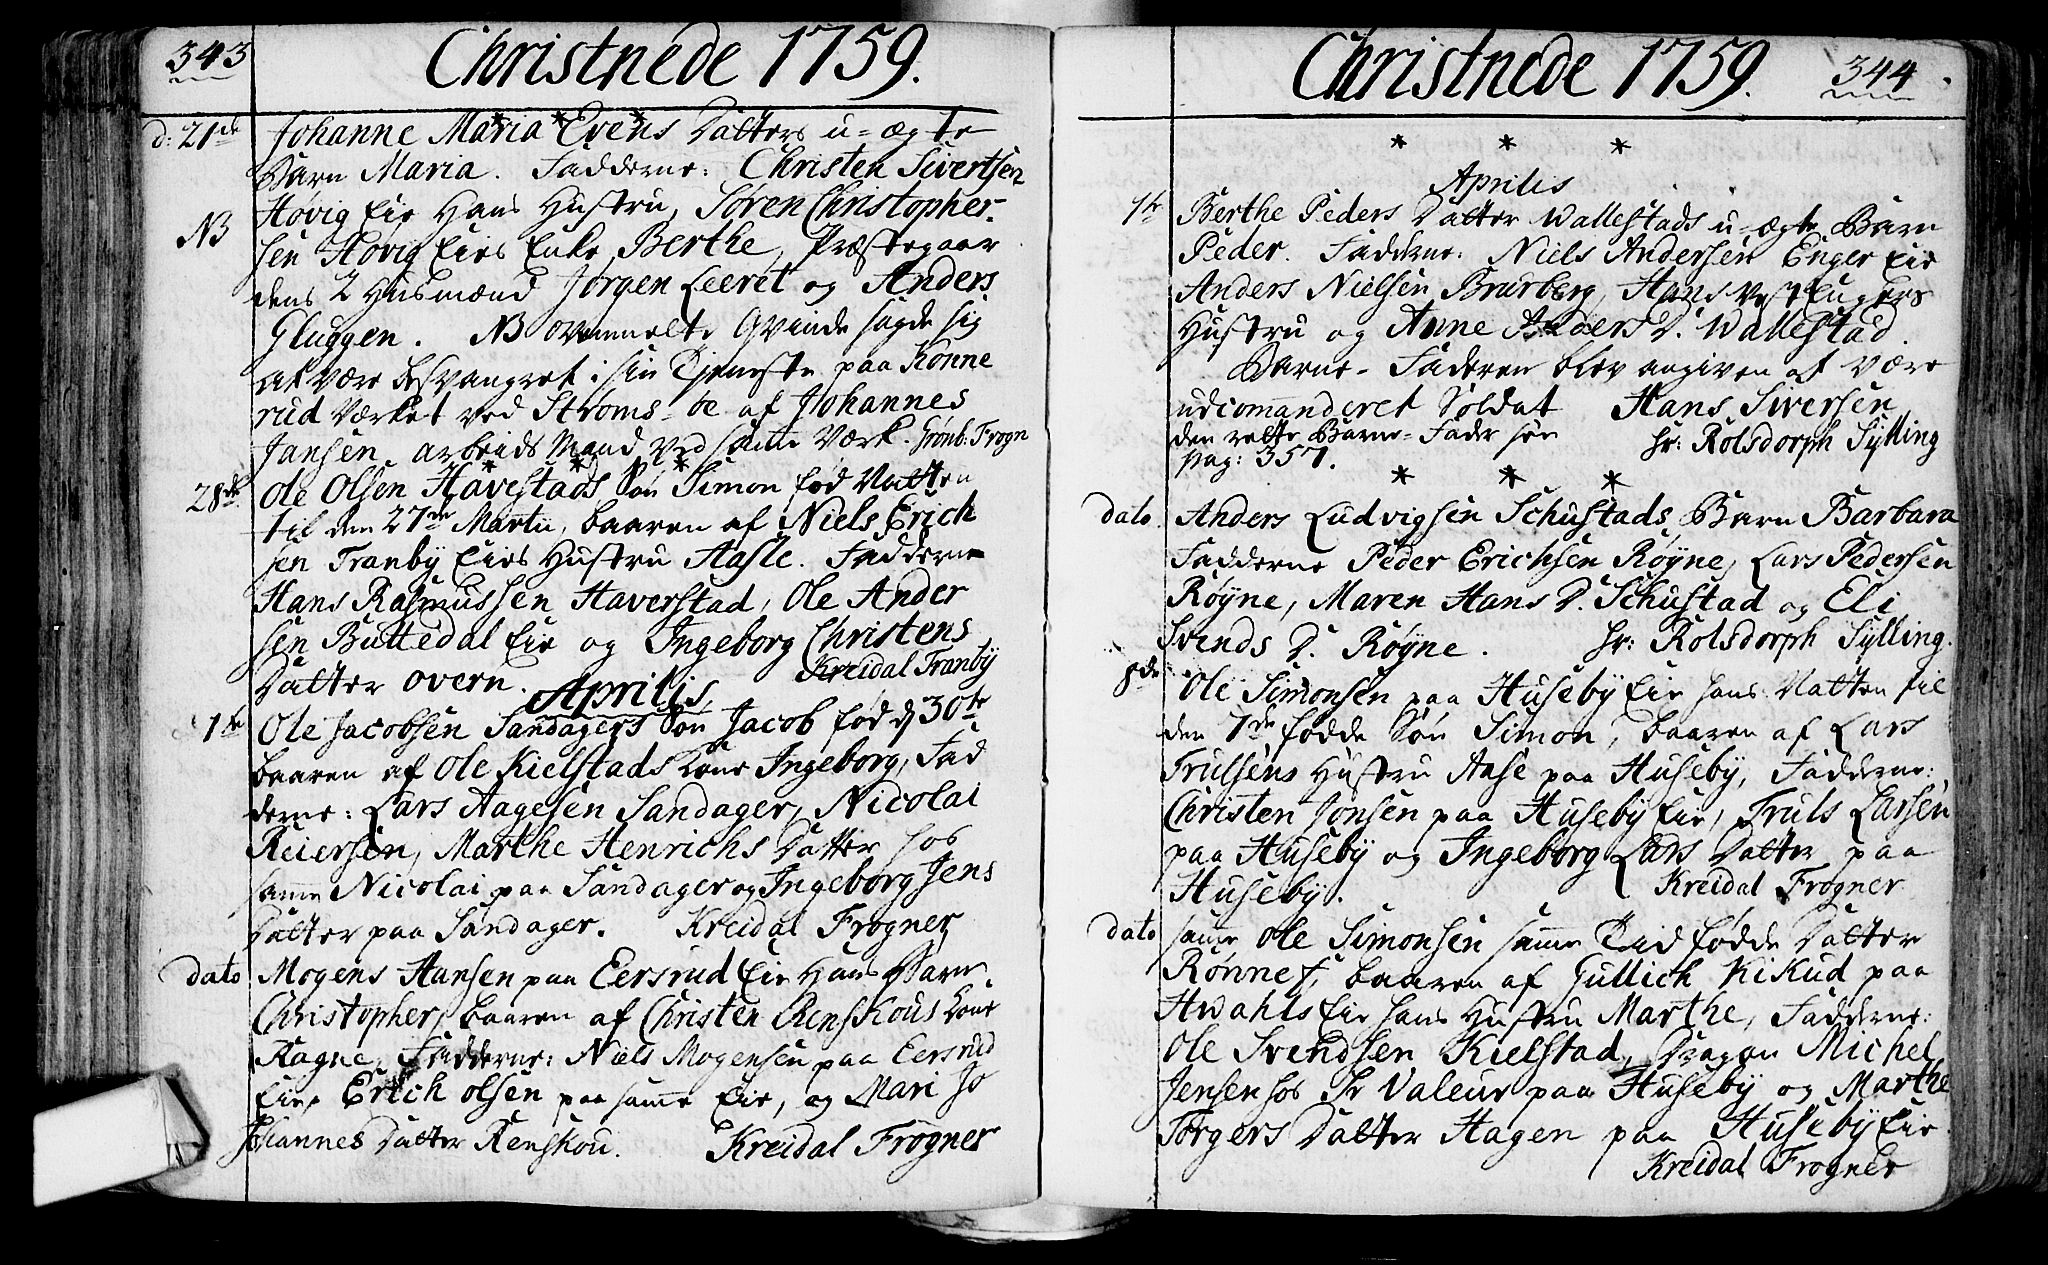 343
Christnede 1759.
d: 21de Johanne Maria Evens Datters u=ægte
Barn Maria. Fadderne: Christen Sivertsen
Høvig Eie Hans Hustru, Søren Christopher-
NB sen Høvig Eies Enke Berthe, Præstegaar
dens 2 Husmænd Jørgen Leeret og Anders
Gluggen. NB ovenmelte Qvinde sagde sig
at være besvangret i sin Tjeneste paa Konne
rud Værket ved Strøms-oe af Johannes
Jansen, arbeids Mand ved samme Værk. Grønb: Frogn
* * *
28de Ole Olsen Havestads Søn Simon fød Natten
til den 27de Martii, baaren af Niels Erich
sen Tranby Eies Hustru Aasle. Fadderne
Hans Rasmussen Haverstad, Ole Ander
sen Buttedal Eie og Ingeborg Christens
Datter overn. Kreidal Tranby
Aprilis
1te Ole Jacobsen Sandagers Søn Jacob fød d 30te
baaren af Ole Kielstads Kone Ingeborg, Fad
derne: Lars Aagesen Sandager, Nicolai
Reiersen, Marthe Henrichs Datter hos
samme Nicolai paa Sandager og Ingeborg Jens
Datter paa Sandager. Kreidal Frogner
dato Mogens Hansen paa Eersrud Eie Hans Barn
Christopher, baaren af Christen Renskous Kone
Ragne, Fadderne: Niels Mogensen paa Eersrud
Eie, Erich Olsen paa samme Eie, og Mari Jo
hannes Datter Renskou. Kreidal Frogner
Christnede 1759. 344
* * *
Aprilis
1te Berthe Peders Datter Wallestads u-ægte Barn
Peder. Fadderne: Niels Andersen Enger Eie
Anders Nielsen Brurberg, Hans Vest Engers
Hustru og Anne Anders D. Wallestad.
Barne-Faderen blev angiven at være
udcomanderet Soldat Hans Siversen
den rette Barne-Fader see
pag: 357. Hr: Rolsdorph Sylling
* * *
dato. Anders Ludvigsen Schustads Barn Barbara
Fadderne Peder Erichsen Røyne, Lars Pedersen
Røyne, Maren Hans D. Schustad og Eli
Svends D. Røyne. Hr: Rolsdorph Sylling.
8de Ole Simonsen paa Huseby Eie hans Natten til
den 7de fødde Søn Simon, baaren af Lars
Trulsens Hustru Aase paa Huseby, Fadderne:
Christen Jonsen paa Huseby Eie, Truls Larsen
paa Huseby og Ingeborg Lars Datter paa
Huseby. Kreidal Frogner
dato samme Ole Simonsen samme Tid fødde Datter
Rønnef, baaren af Gullich Kikud paa
Hwahls Eie hans Hustru Marthe, Fadderne:
Ole Svendsen Kielstad, Dragon Michel
Jensen hos Hr Valeur paa Huseby og Marthe
Torgers Datter Hagen paa Huseby Eie.
Kreidal Frogner